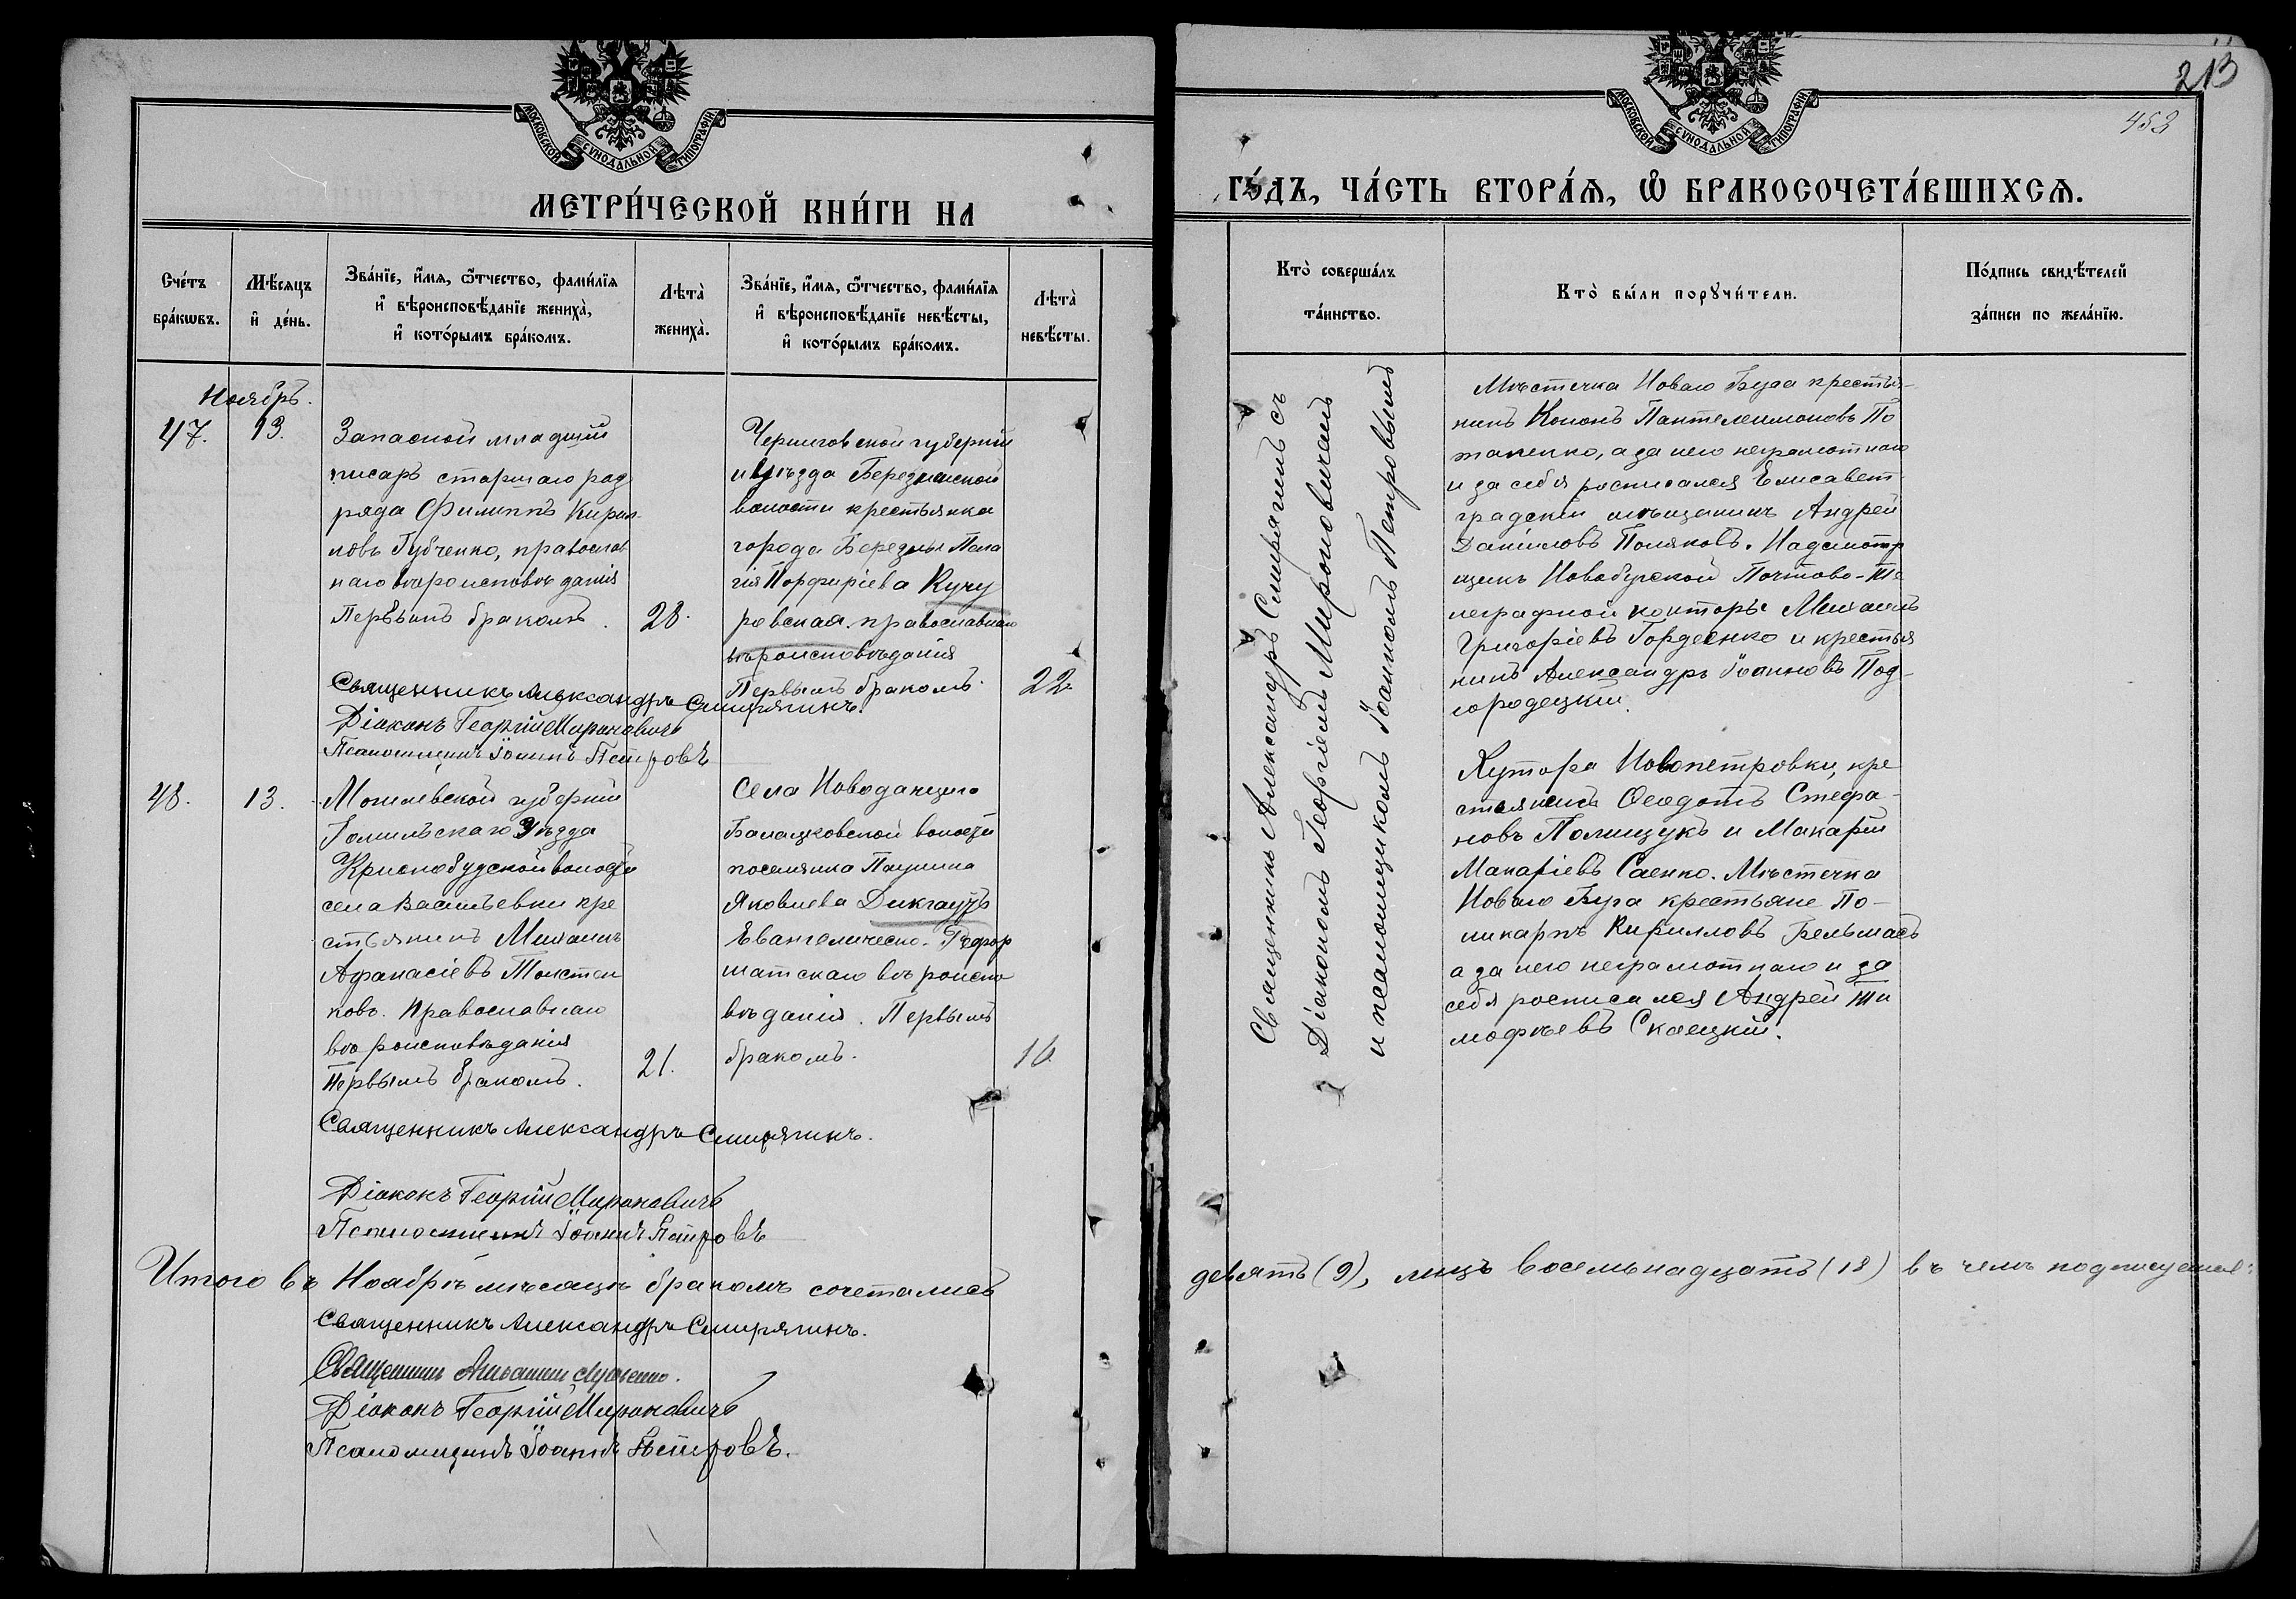 МОСКОВСКОЙ СѴНОДАЛЬНОЙ ТИПОГРАФІИ
МЕТРИ́ЧЕСКОЙ КНИ́ГИ НА
Сче́тъ бра́кѡвъ.
Мѣ́сяцъ и҆ де́нь.
Зва́нїе, и҆́мя, ѻ҆́тчество, фами́лїя
и҆ вѣроисповѣ́данїе жениха̀,
и҆ кото́рымъ бра́комъ.
Лѣта̀ жениха̀.
Зва́нїе, и҆́мя, ѻ҆́тчество, фами́лїя
и҆ вѣроисповѣ́данїе невѣ́сты,
и҆ кото́рымъ бра́комъ.
Лѣта̀ невѣ́сты.
Ноябрь.
47.
13.
Запасной младшій
писарь старшаго раз
ряда Филиппъ Кирил-
ловъ Губченко, православ
наго вѣроисповѣданія
Первымъ бракомъ.
28.
Черниговской губерніи
и уѣзда Березнанской
волости крестьянка
города Березны Пела
гія Порфиріева Кучу
ровская. православнаго
вѣроисповѣданія
Первымъ бракомъ.
22
Священникъ Александръ Смирягинъ.
Діаконъ Георгій Мироновичъ
Псаломщикъ Іоаннъ Петровъ
48.
13.
Могилевской губерніи
Гомильскаго Уѣзда
Краснобудской волости
села Васильевки кре
стьянинъ Михаилъ
Афанасіевъ Толстен
ковъ. Православнаго
вѣроисповѣданія
Первымъ бракомъ.
21.
Села Новоданцига
Балацковской волости
поселянка Паулина
Яковлева Дикгаутъ
Евангелическо-Рефор
матскаго вѣроиспо
вѣданія. Первымъ
бракомъ.
16
Священникъ Александръ Смирягинъ.
Діаконъ Георгій Мироновичъ
Псаломщикъ Іоаннъ Петровъ
Итого въ Ноябрѣ мѣсяцѣ бракомъ сочетались
Священникъ Александръ Смирягинъ.
Священникъ
Діаконъ Георгій Мироновичъ
Псаломщикъ Іоаннъ Петровъ.
213
453
МОСКОВСКОЙ СѴНОДАЛЬНОЙ ТИПОГРАФІИ
ГО́ДЪ, ЧА́СТЬ ВТОРА́Я, Ѡ҆ БРАКОСОЧЕТА́ВШИХСЯ.
Кто̀ соверша́лъ
та́инство.
Кто̀ бы́ли порꙋчи́тели.
По́дпись свидѣ́телей
за́писи по жела́нїю.
Священникъ Александръ Смирягинъ съ
Діакономъ Георгіемъ Мироновичемъ
и псаломщикомъ Іоанномъ Петровымъ
Мѣстечка Новаго Буга крестья-
нинъ Кононъ Пантелеимоновъ По
тапенко, а за него неграмотнаго
и за себя росписался Елисавет-
градскій мѣщанинъ Андрей
Даниловъ Поляковъ. Надсмотр
щикъ Новобугской Почтово-Те
леграфной конторы Михаилъ
Григоріевъ Гордѣенко и крестья
нинъ Александръ Іоанновъ Под-
городецкій.
Хутора Новопетровки, кре
стьянинъ Ѳеодотъ Стефа-
новъ Полищукъ и Макарій
Макаріевъ Саенко. Мѣстечка
Новаго Буга крестьяне По-
ликарпъ Кирилловъ Бельмасъ
а за него неграмотнаго и за
себя росписался Андрей Ти
мофѣевъ Скаецкій.
девять (9), лицъ восемьнадцать (18) въ чемъ подписуемся: